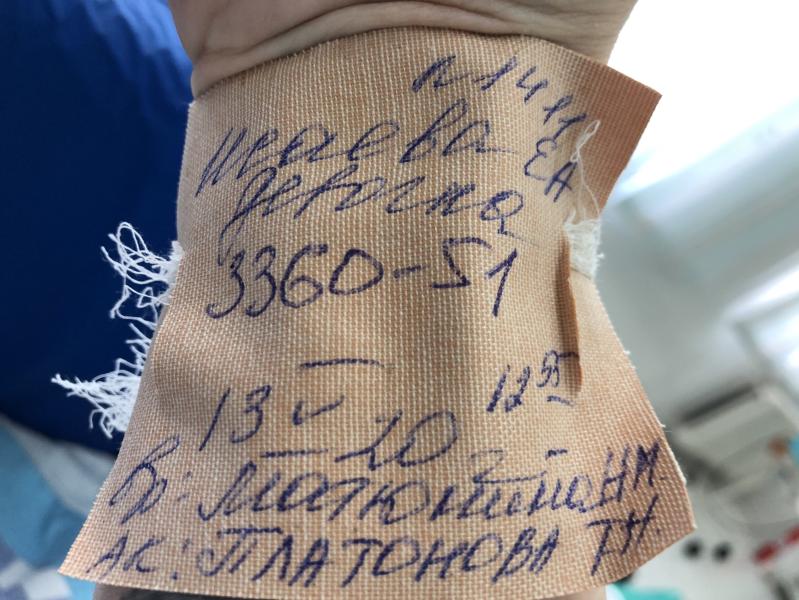 N 1411
Исаева ЕА
девочка
3360-51
13 V 20 12 55
Вр: Матюнина НМ.
АК: ПЛАТОНОВА ТН